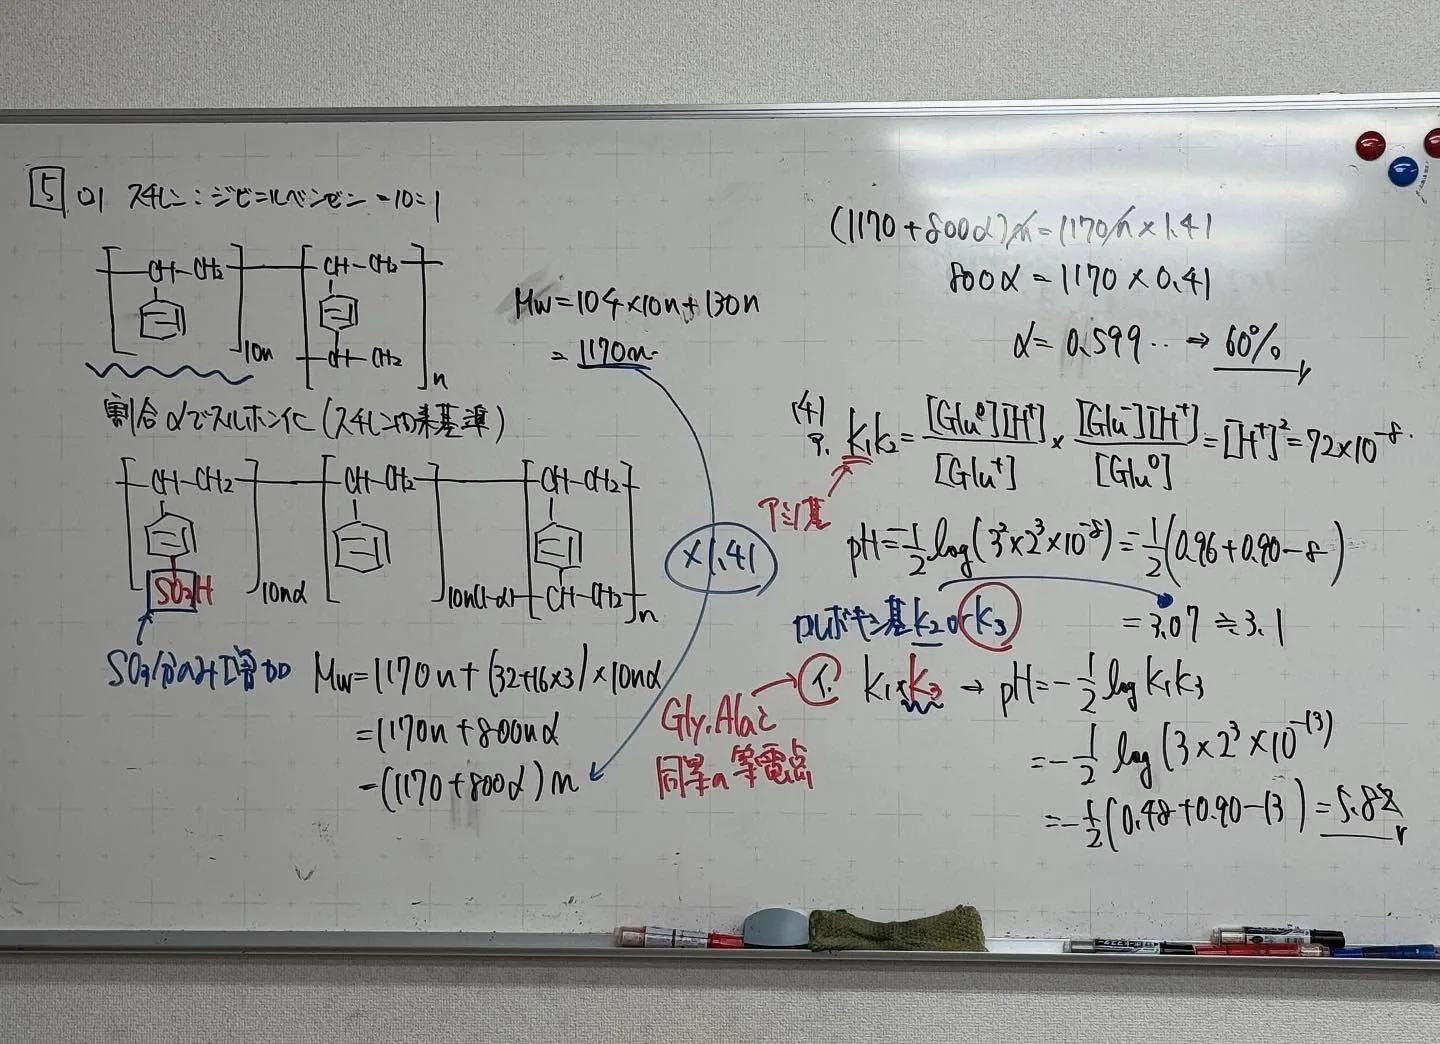 5 (2) スチレン:ジビニルベンゼン=10:1
CH-CH2
CH-CH2
10n
CH-CH2
n
Mw=104×10n+130n
=1170n
割合αでスルホン化(スチレン由来基準)
CH-CH2
CH-CH2
CH-CH2
SO3H
10nα
10n(1-α)
CH-CH2
n
SO3分のみ増加
Mw=1170n+(32+16×3)×10nα
=1170n+800nα
=(1170+800α)n
×1.41
(1170+800α)n=1170n×1.41
800α=1170×0.41
α=0.599‥⇒60%
(4)
ア. K1K2=[Glu0][H+]/[Glu+]×[Glu-][H+]/[Glu0]=[H+]²=72×10-8
アミノ基
pH=-1/2log(3²×2³×10-8)=-1/2(0.96+0.90-8)
カルボキシ基K2orK3
=3.07≒3.1
イ. K1×K3→pH=-1/2logK1K3
Gly.Alaと
同果の等電点
=-1/2log(3×2³×10-13)
=-1/2(0.48+0.90-13)=5.82